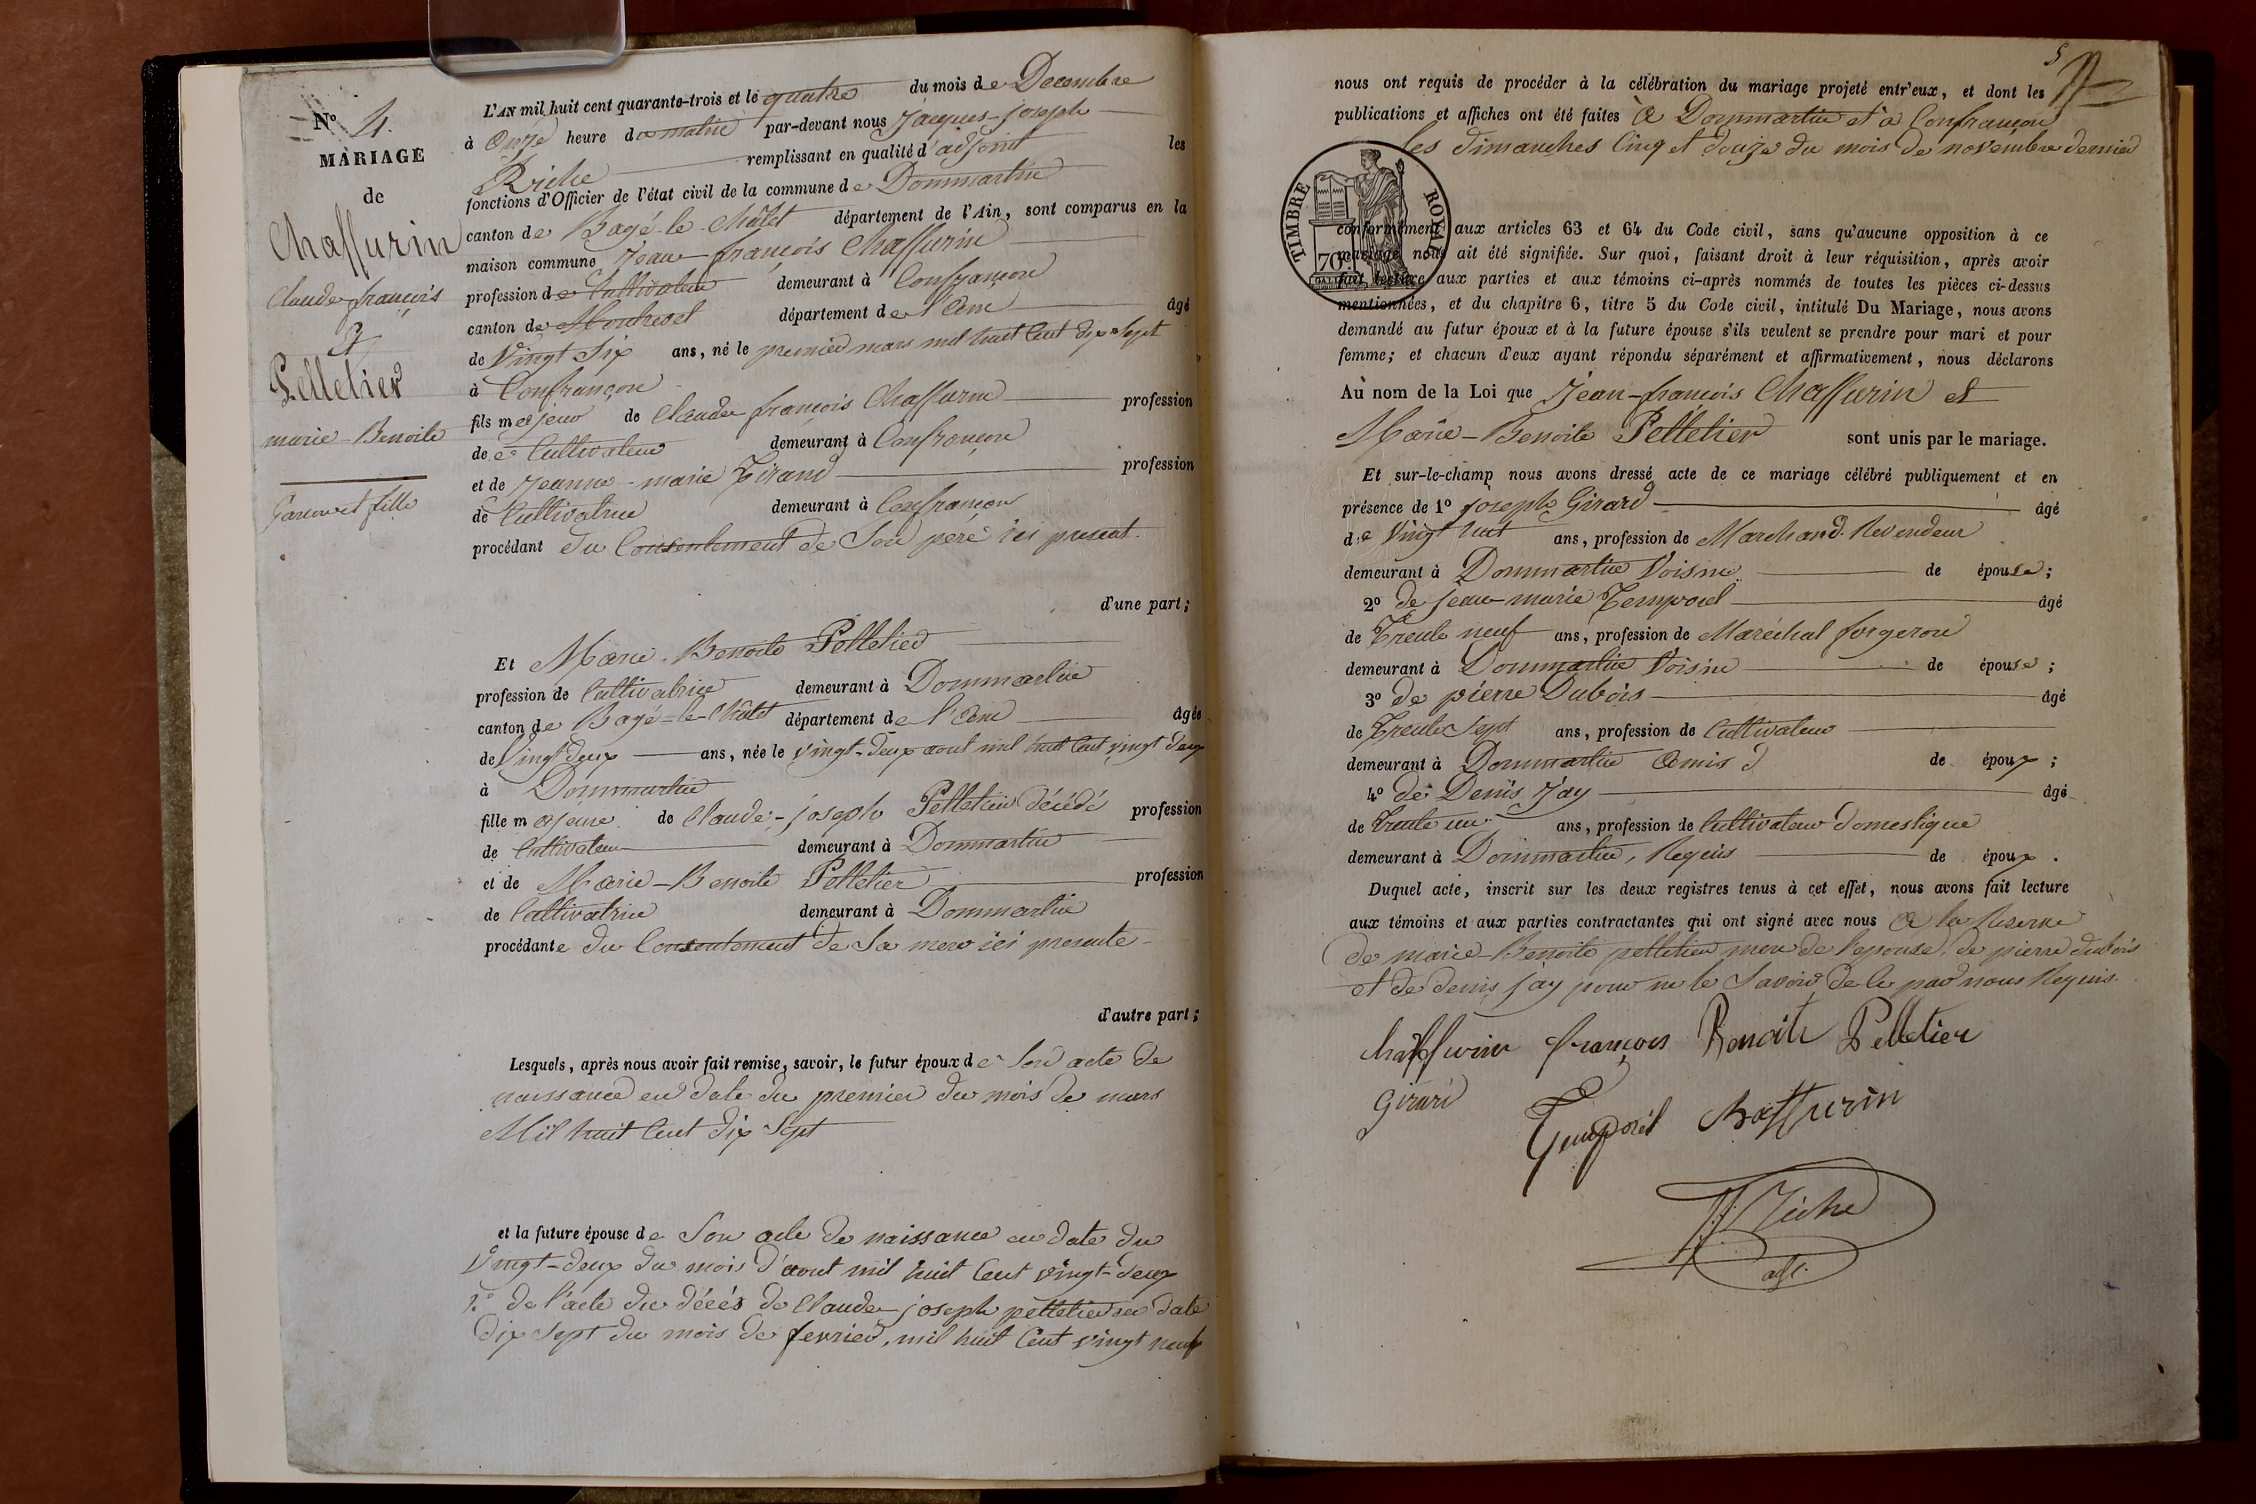 N° 4.
MARIAGE
de
Chaffurin
Claude françois
&
Pelletier
marie-Benoite
Garcon et fille
L'AN mil huit cent quarante-trois et le quatre du mois de Decembre
à Onze heure du matin par-devant nous Jacques-joseph
Riche remplissant en qualité d'adjoint les
fonctions d'Officier de l'état civil de la commune de Dommartin
canton de Bagé-le-Châtel département de l'Ain, sont comparus en la
maison commune Jean-françois Chaffurin
profession de Cultivateur demeurant à Confrançon
canton de Montrevel département de l'Ain âgé
de Vingt Six ans, né le premier mars mil huit Cent dix Sept
à Confrançon
fils majeur de Claude françois Chaffurin profession
de Cultivateur demeurant à Confrançon
et de Jeanne-marie Tirand profession
de Cultivatrice demeurant à Confrançon
procédant du Consentement de Son père ici present.
d'une part;
Et Marie-Benoite Pelletier
profession de Cultivatrice demeurant à Dommartin
canton de Bagé-le-Châtel département de l'Ain âgée
de Vingt deux ans, née le vingt-deux aout mil huit Cent vingt deux
à Dommartin
fille majeure de Claude-joseph Pelletier décédé profession
de Cultivateur demeurant à Dommartin
et de Marie-Benoite Pelletier profession
de Cultivatrice demeurant à Dommartin
procédante du Consentement de Sa mere ici presente
d'autre part;
Lesquels, après nous avoir fait remise, savoir, le futur époux de Son acte de
naissance en date du premier du mois de mars
Mil huit Cent dix Sept
et la future épouse de Son acte de naissance en date du
Vingt-deux du mois d'aout mil huit Cent vingt-deux
2° de l'acte du décés de Claude-joseph pelletier en date
dix Sept du mois de fevrier, mil huit Cent vingt neuf
5
nous ont requis de procéder à la célébration du mariage projeté entr'eux, et dont les
publications et affiches ont été faites à Dommartin et à Confrançon
les dimanches Cinq et douze du mois de novembre dernier
TIMBRE ROYAL
70
conformément aux articles 63 et 64 du Code civil, sans qu'aucune opposition à ce
mariage nous ait été signifiée. Sur quoi, faisant droit à leur réquisition, après avoir
fait lecture aux parties et aux témoins ci-après nommés de toutes les pièces ci-dessus
mentionnées, et du chapitre 6, titre 5 du Code civil, intitulé Du Mariage, nous avons
demandé au futur époux et à la future épouse s'ils veulent se prendre pour mari et pour
femme; et chacun d'eux ayant répondu séparément et affirmativement, nous déclarons
Au nom de la Loi que Jean-françois Chaffurin et
Marie-Benoite Pelletier sont unis par le mariage.
Et sur-le-champ nous avons dressé acte de ce mariage célébré publiquement et en
présence de 1° joseph Girard âgé
de Vingt huit ans, profession de Marchand. Revendeur
demeurant à Dommartin Voisin de épouse;
2° de Jean-marie Temporel âgé
de Trente neuf ans, profession de Maréchal forgeron
demeurant à Dommartin Voisin de épouse;
3° de pierre Dubois âgé
de Trente Sept ans, profession de Cultivateur
demeurant à Dommartin Amis d de époux;
4° de Denis Jay âgé
de Trente un ans, profession de Cultivateur domestique
demeurant à Dommartin, Requis de époux.
Duquel acte, inscrit sur les deux registres tenus à cet effet, nous avons fait lecture
aux témoins et aux parties contractantes qui ont signé avec nous A la Reserve
de marie-Benoite pelletier mere de l'epouse, de pierre dubois
et de denis jay pour ne le Savoir de ce par nous Requis.
Chaffurin françois Benoite Pelletier
Girard
Temporel Chaffurin
JJ Riche
adj.